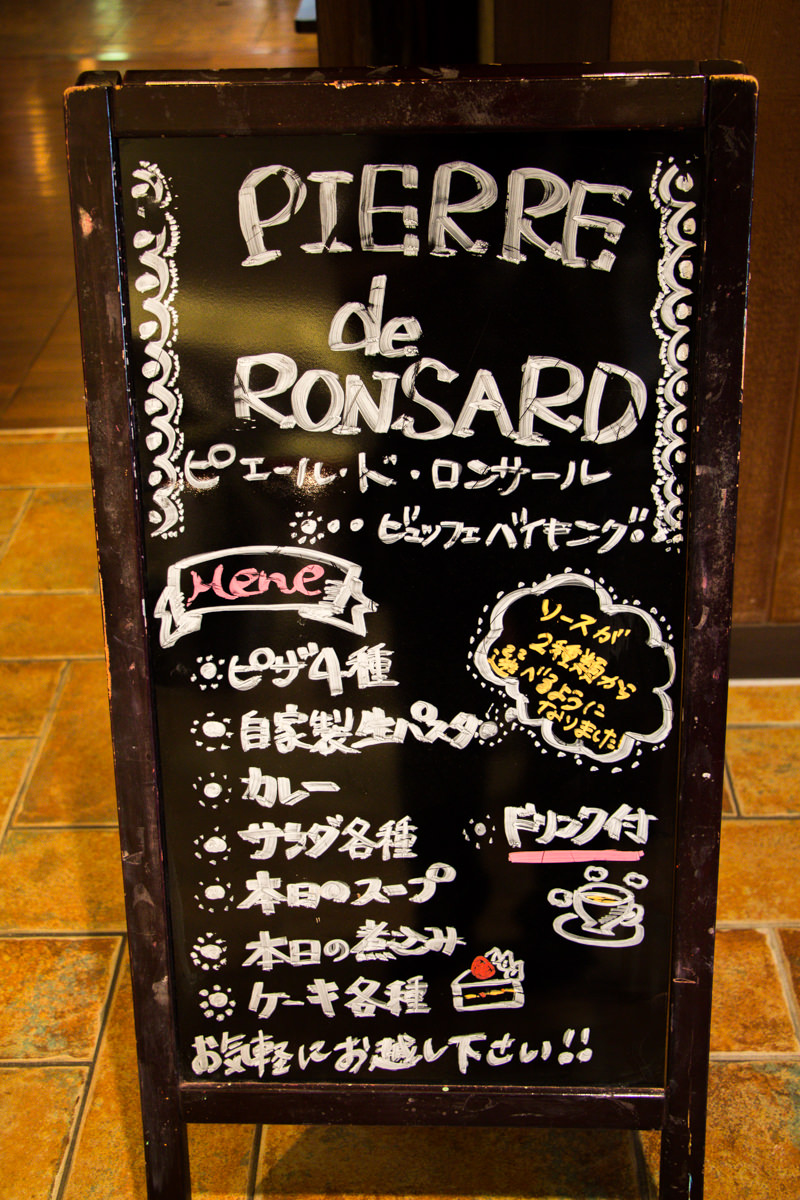 PIERRE
de
RONSARD
ピエール・ド・ロンサール
ビュッフェバイキング!
Mene
ピザ4種
自家製生パスタ
ソースが
2種類から
選べるように
なりました
カレー
サラダ各種
ドリンク付
本日のスープ
本日の煮込み
ケーキ各種
お気軽にお越し下さい!!